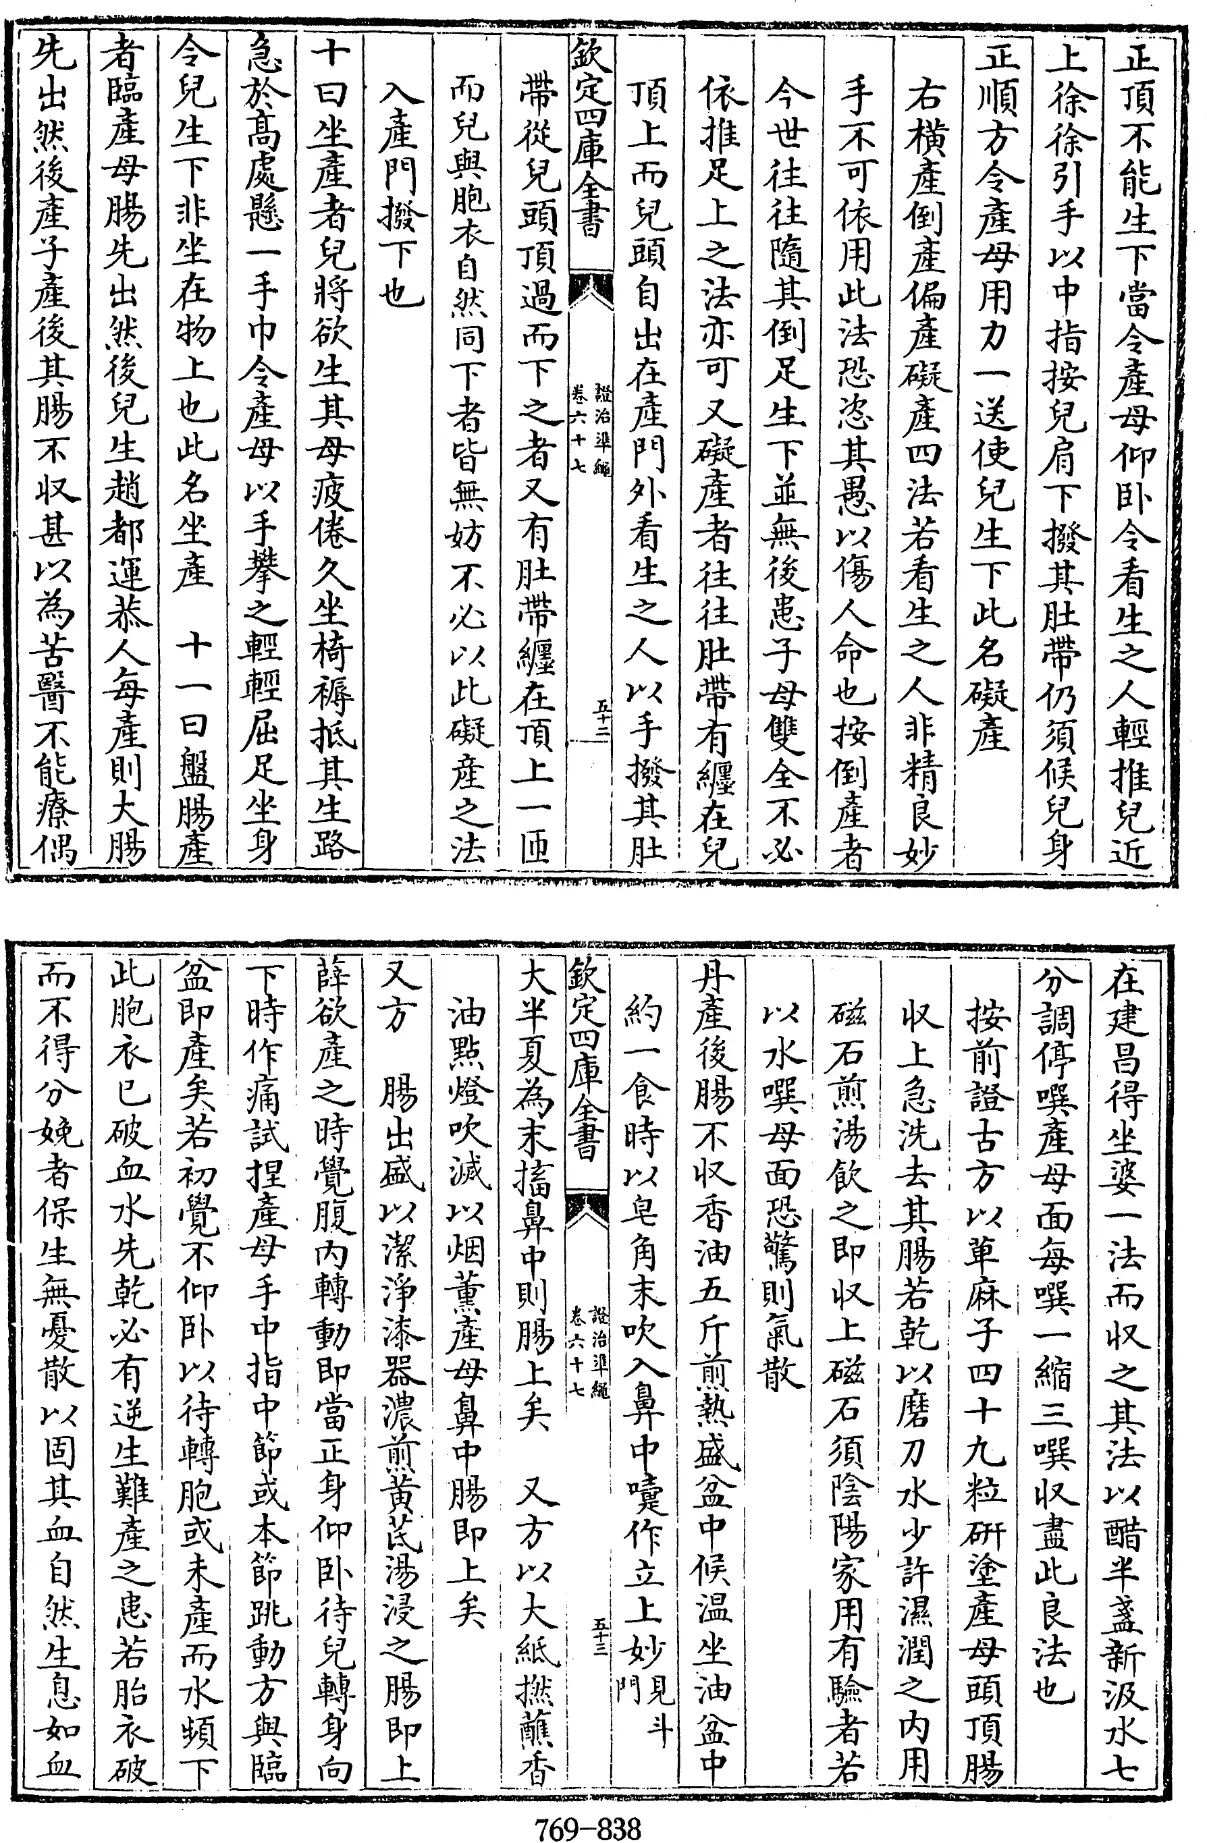 正頂不能生下當令產母仰卧令看生之人輕推兒近
上徐徐引手以中指按兒肩下撥其肚帶仍須候兒身
正順方令產母用力一送使兒生下此名礙產
右橫產倒產偏產礙產四法若看生之人非精良妙
手不可依用此法恐恣其愚以傷人命也按倒產者
今世往往隨其倒足生下並無後患子母雙全不必
依推足上之法亦可又礙產者往往肚帶有纏在兒
頂上而兒頭自出在產門外看生之人以手撥其肚
欽定四庫全書
證治準繩
卷六十七
五十二
帶從兒頭頂過而下之者又有肚帶纏在頂上一匝
而兒與胞衣自然同下者皆無妨不必以此礙產之法
入產門撥下也
十曰坐產者兒將欲生其母疲倦久坐椅褥抵其生路
急於高處懸一手巾令產母以手攀之輕輕屈足坐身
令兒生下非坐在物上也此名坐產　十一曰盤腸產
者臨產母腸先出然後兒生趙都運恭人每產則大腸
先出然後產子產後其腸不收甚以為苦醫不能療偶
在建昌得坐婆一法而收之其法以醋半盞新汲水七
分調停噀產母面每噀一縮三噀收盡此良法也
按前證古方以萆麻子四十九粒研塗產母頭頂腸
收上急洗去其腸若乾以磨刀水少許濕潤之内用
磁石煎湯飲之即收上磁石須陰陽家用有驗者若
以水噀母面恐驚則氣散
丹產後腸不收香油五斤煎熱盛盆中候温坐油盆中
約一食時以皂角末吹入鼻中嚏作立上妙見斗門
欽定四庫全書
證治準繩
卷六十七
五十三
大半夏為末搐鼻中則腸上矣　又方以大紙撚蘸香
油點燈吹滅以烟薰產母鼻中腸即上矣
又方　腸出盛以潔淨漆器濃煎黄芪湯浸之腸即上
薛欲產之時覺腹内轉動即當正身仰卧待兒轉身向
下時作痛試捏產母手中指中節或本節跳動方與臨
盆即產矣若初覺不仰卧以待轉胞或未產而水頻下
此胞衣已破血水先乾必有逆生難產之患若胎衣破
而不得分娩者保生無憂散以固其血自然生息如血
769-838